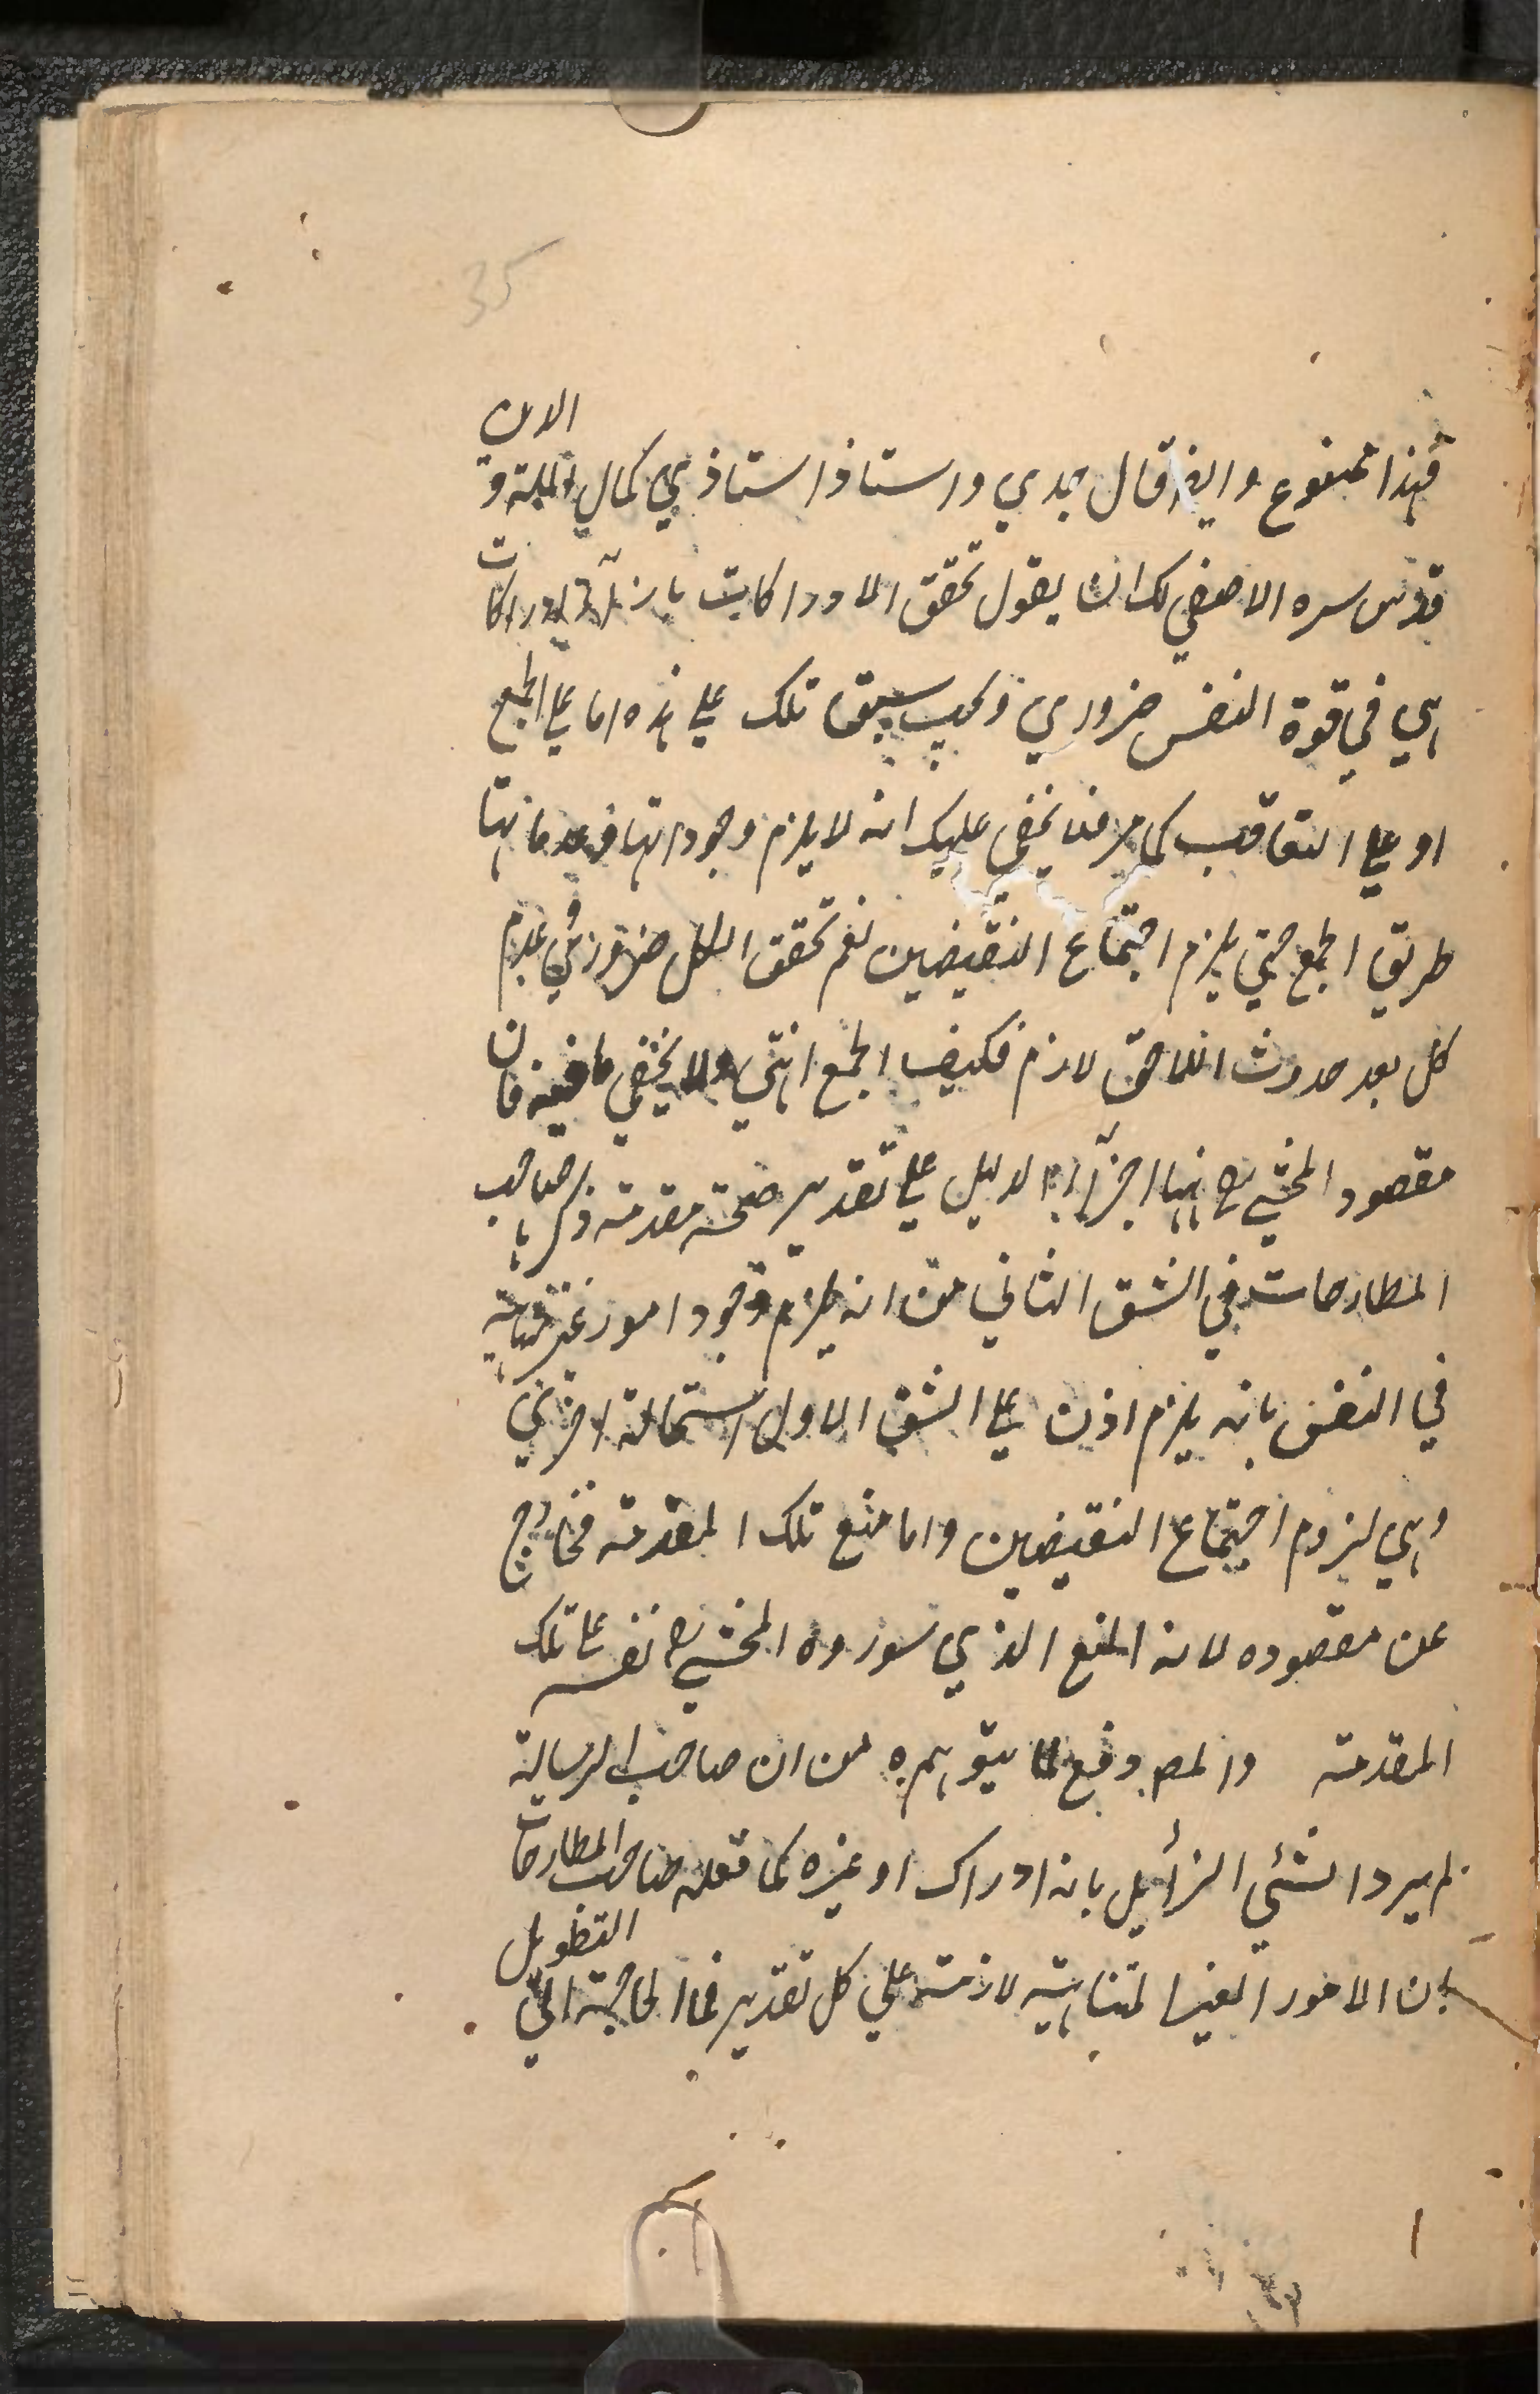 35
فهذا ممنوع وايضا قال جدي واستاذ استاذي كمال الملة و الدين
قدس سره الاصفي لك ان يقول تحقق الادراكات بازاء الادراكات
هي في قوة النفس ضروري وكيب سبق تلك علي هذه اما علي الجمع
او علي التعاقب كما مر فلا يخفي عليك انه لا يلزم وجوداتها وعدماتها
طريق الجمع حتي يلزم اجتماع النقيضين نعم تحقق الكل ضروري وفي عدم
كل بعد حدوث اللاحق لازم فكيف الجمع انتهي ولا يخفي ما فيه فان
مقصود المحشي رح ههنا اجراء الدليل علي تقدير صحة مقدمة ذكرها صاحب
المطارحات في الشق الثاني من انه يلزم وجود امور غير متناهية
في النفس بانه يلزم اذن علي الشق الاول استحالة اخري
وهي لزوم اجتماع النقيضين واما منع تلك المقدمة فخارج
عن مقصوده لانه المنع الذي سورده المحشي رح نفسه علي تلك
المقدمة والمص دفع لما يتوهم من ان صاحب الرسالة
لم يردد الشئ الزائل بانه ادراك او غيره كما فعله صاحب المطارحات
بان الامور الغير المتناهية لازمة علي كل تقدير فما الحاجة الي التطويل